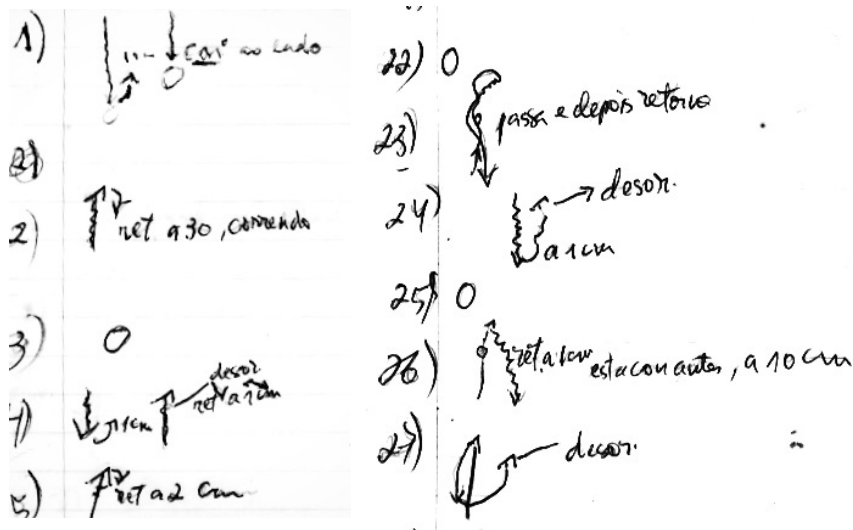 1) cai ao lado
2)
2) ret a 30, correndo
3) O
4) 1cm desor. ret a 1cm
5) ret a 2 cm
22) O
passa e depois retorna
23)
24) desor.
a 1 cm
25) O
26) ret a 1cm estacou antes, a 10 cm
27) desor.